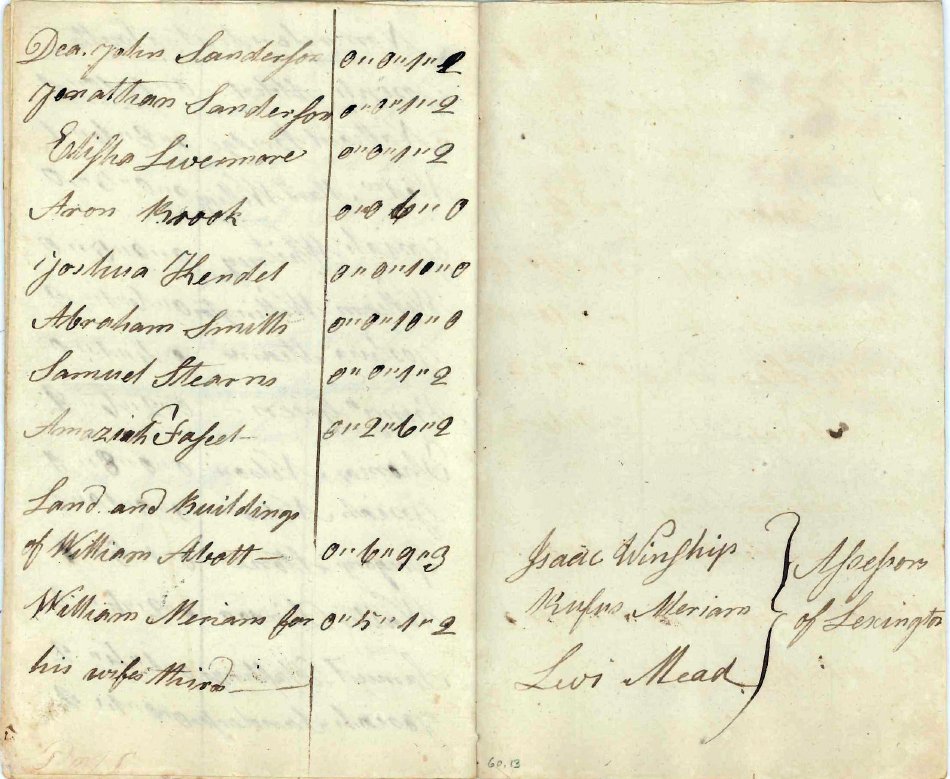 Dea. John Sanderson 0"0"1"2
Jonathan Sanderson 0"0"1"2
Elisha Livermore 0"0"1"2
Aron Brook 0"0 6"0
Joshua Kendel 0"0"10"0
Abraham Smith 0"0"10"0
Samuel Stearns 0"0"1"2
Amaziah Faset 0"2"6"2
Land and Buildings
of William Abott 0"6"9"3
William Meriam for 0"5"1"2
his wifes third
Isaac Winship
Rufus Meriam
Levi Mead
Assessors
of Lexington
60.13